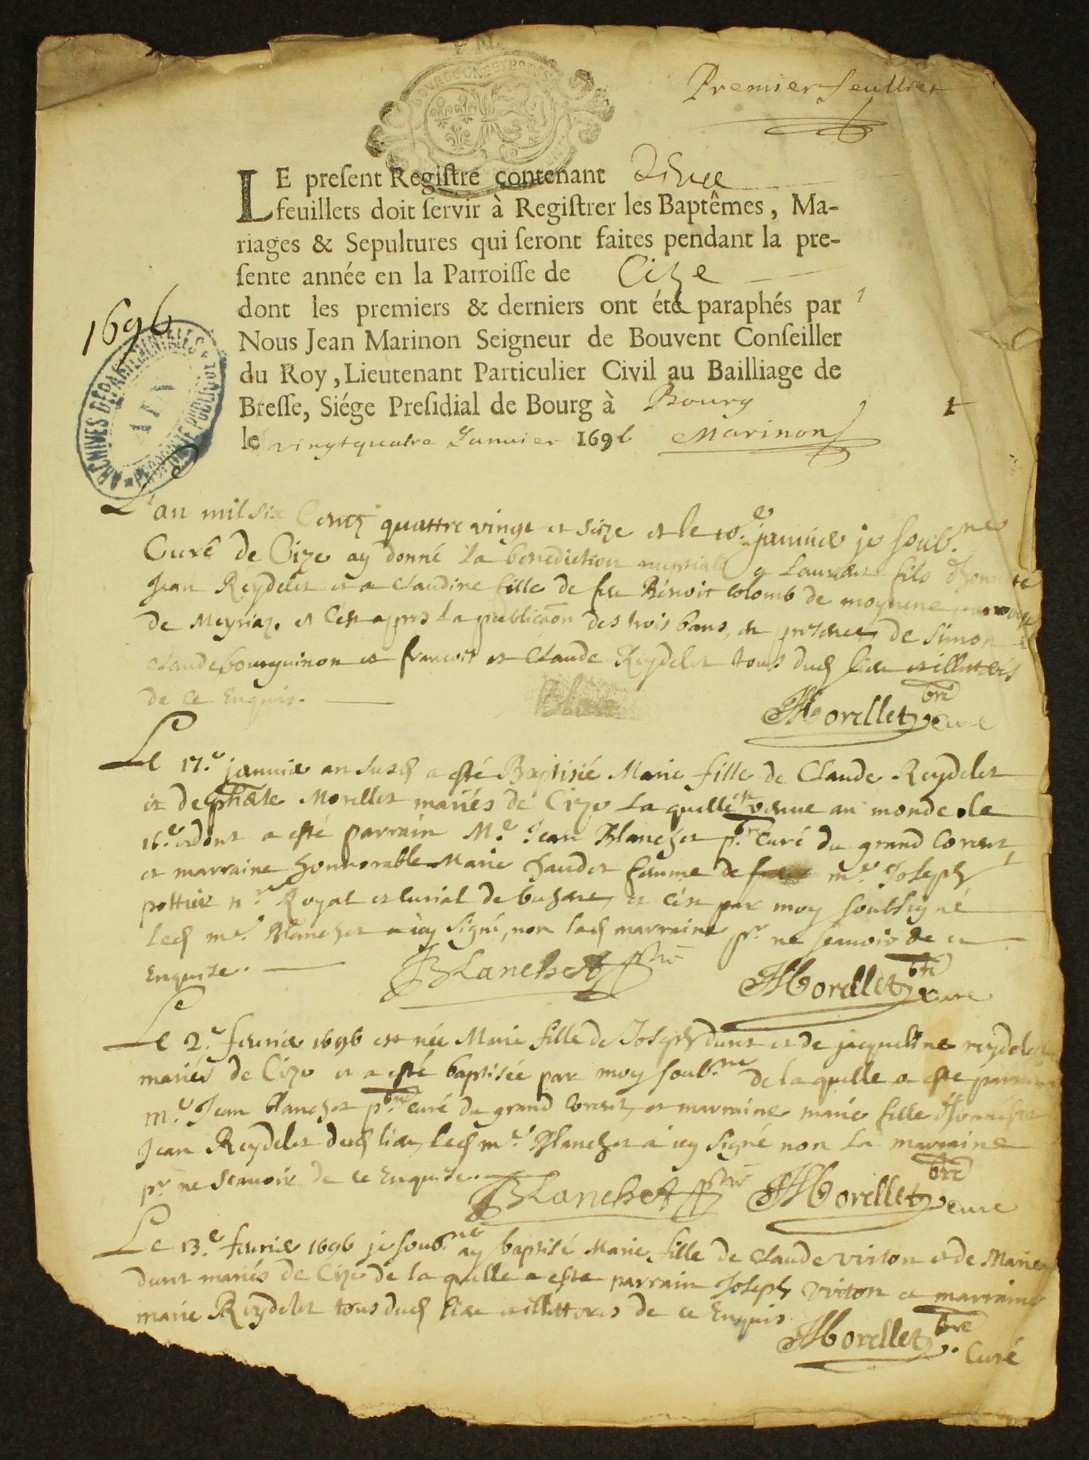 Premier feuillet
LE preſent Regiſtre contenant
feuillets doit ſervir à Regiſtrer les Baptêmes, Ma-
riages & Sepultures qui ſeront faites pendant la pre-
ſente année en la Parroiſſe de Cize
dont les premiers & derniers ont été paraphés par
Nous Jean Marinon Seigneur de Bouvent Conſeiller
du Roy, Lieutenant Particulier Civil au Bailliage de
Breſſe, Siége Preſidial de Bourg à Bourg
le vingtquatre Janvier 1696 Marinon
1696
ARCHIVES DÉPARTEMENTALES
AIN
L'an mil six Centz quattre vingt et seize et le 10.e janvier je soub.nes
Curé de Cize ay donné la benediction nuptialle a Laurent fils d'honneste
Jean Reydelet et a Claudine fille de feu Benoit Colomb de
de Meyriaz. et Cest apres la publicaon des trois bans, en de Simon
Claude bourguinon et francois et Claude Reydelet tous dud lieu et illitteres
de ce Enquis.
Morellet pbre curé
Le 17.e janvier an susd a esté Baptisié Marie fille de Claude Reydelet
et de Morellet mariés de Cize la quelle est venue au monde le
16.e dont a esté parrain M.e Jean Blanchet pbre curé du grand Corent
et marraine honnorable Marie famme de m.e Joseph
pottier n.re Royal et curial de et c'est par moy soubsigné
led m.e Blanchet a icy signé, non lad marraine pr ne scavoir de ce
Enquise.
JBLanchet pbre
Morellet pbre curé
Le 2.e fevrier 1696 est née Marie fille de Joseph dunt et de jacqueline reydelet
mariés de Cize et a esté baptisée par moy soub.né de la quelle a este parrain
m.e Jean blanchet pbre curé du grand Corent, et marraine marie fille d'honneste
Jean Reydelet dud lieu, led m.e Blanchet a icy signé non la marraine
pr ne scavoir de ce Enquise.
JBLanchet pbre Morellet pbre curé
Le 13.e fevrier 1696 je soub.né ay baptisé Marie fille de Claude virton et de Marie
dunt mariés de Cize de la quelle a este parrain Joseph virton et marraine
marie Reydelet tous dud lieu et illitteres de ce Enquis.
Morellet pbre. Curé